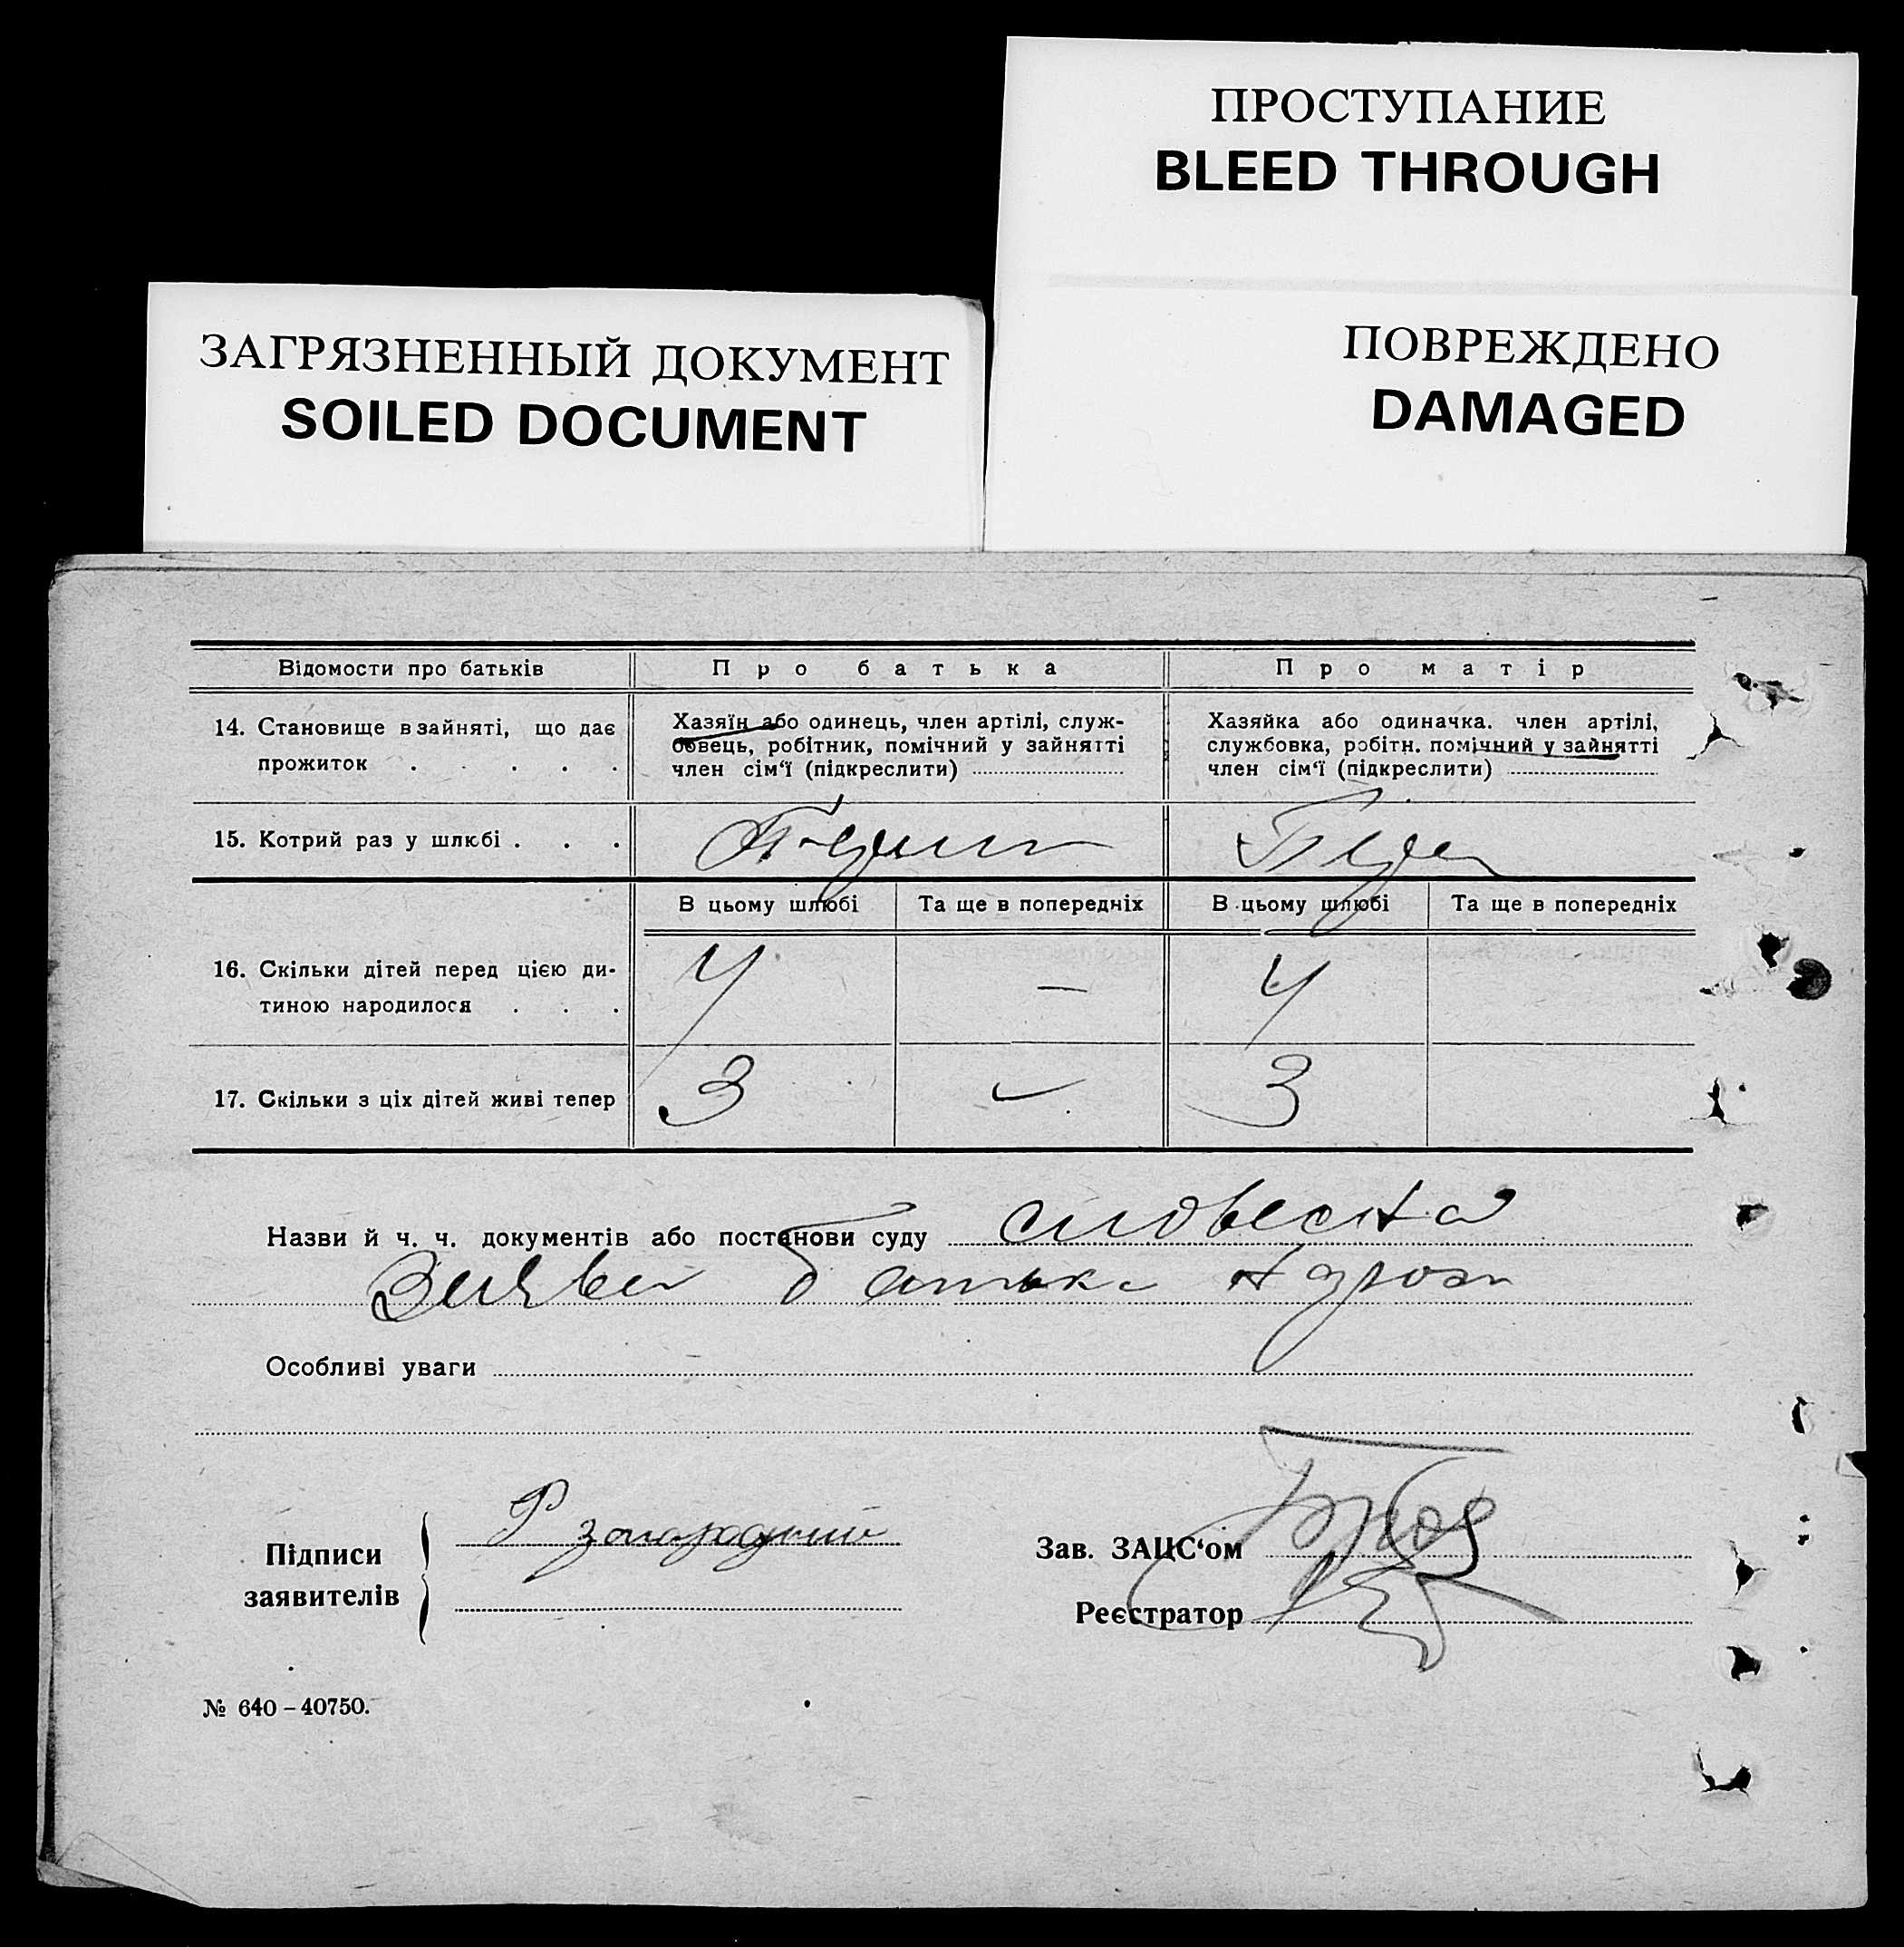 ПРОСТУПАНИЕ
BLEED THROUGH
ЗАГРЯЗНЕННЫЙ ДОКУМЕНТ
SOILED DOCUMENT
ПОВРЕЖДЕНО
DAMAGED
Відомости про батьків Про батька Про матір
14. Становище в зайняті, що дає прожиток . . . . .
Хазяїн або одинець, член артілі, служ-
бовець, робітник, помічний у зайнятті
член сім‘ї (підкреслити)
Хазяйка або одиначка. член артілі,
службовка, робітн. помічний у зайнятті
член сім‘ї (підкреслити)
15. Котрий раз у шлюбі . . .
В цьому шлюбі Та ще в попередніх В цьому шлюбі Та ще в попередніх
16. Скільки дітей перед цією ди-
тиною народилося . . .
4 — 4
17. Скільки з ціх дітей живі тепер 3 3
Назви й ч. ч. документів або постанови суду словесна
батька
Особливі уваги
Підписи
заявителів
Зав. ЗАЦС‘ом
Реєстратор
№ 640 – 40750.